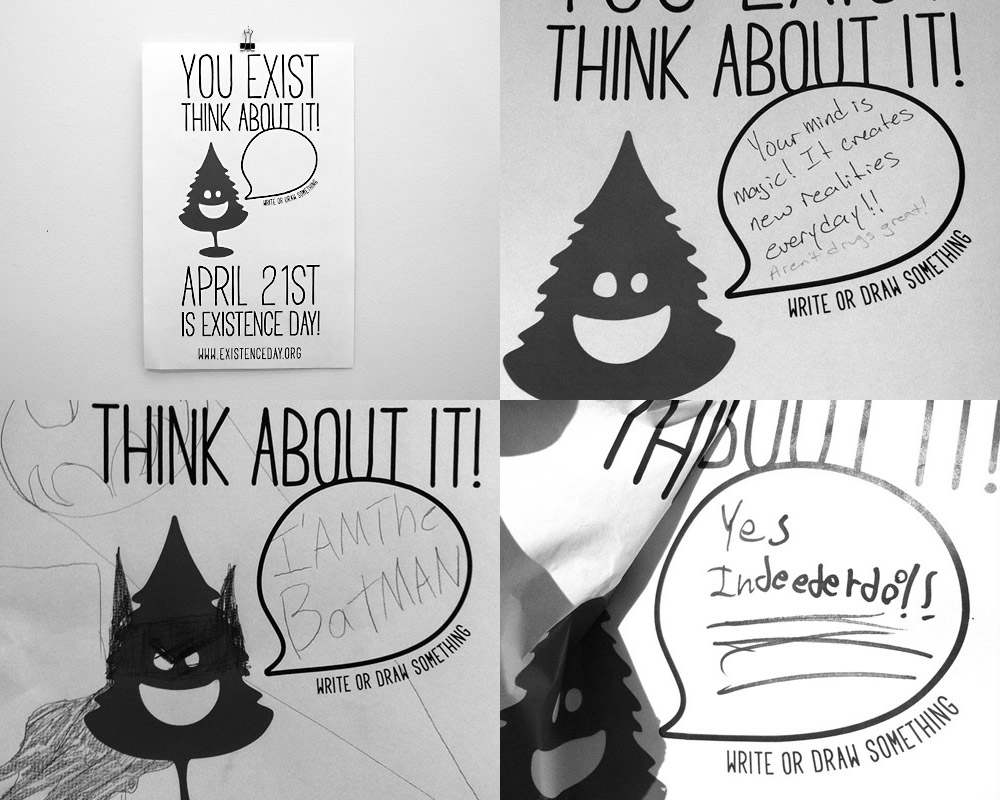 YOU EXIST
THINK ABOUT IT!
WRITE OR DRAW SOMETHING
APRIL 21ST
IS EXISTENCE DAY!
WWW.EXISTENCEDAY.ORG
THINK ABOUT IT!
Your mind is
magic! It creates
new realities
everyday!!
Aren't drugs great!
WRITE OR DRAW SOMETHING
THINK ABOUT IT!
I'AM The
BatMAN
WRITE OR DRAW SOMETHING
ABOUT IT!
Yes
Indeederdo!!
WRITE OR DRAW SOMETHING